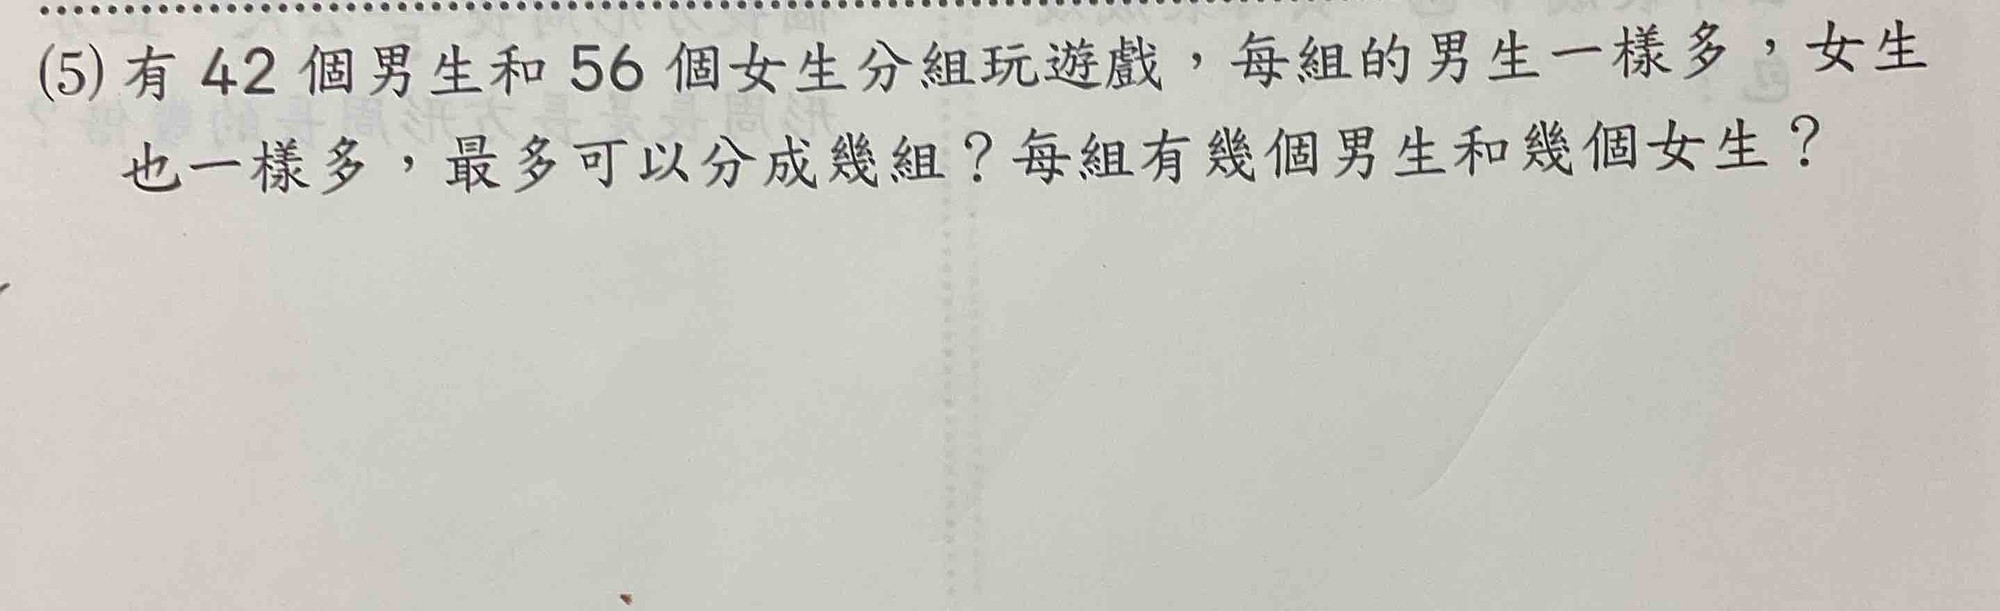 (5) 有 42 個男生和 56 個女生分組玩遊戲，每組的男生一樣多，女生
也一樣多，最多可以分成幾組？每組有幾個男生和幾個女生？